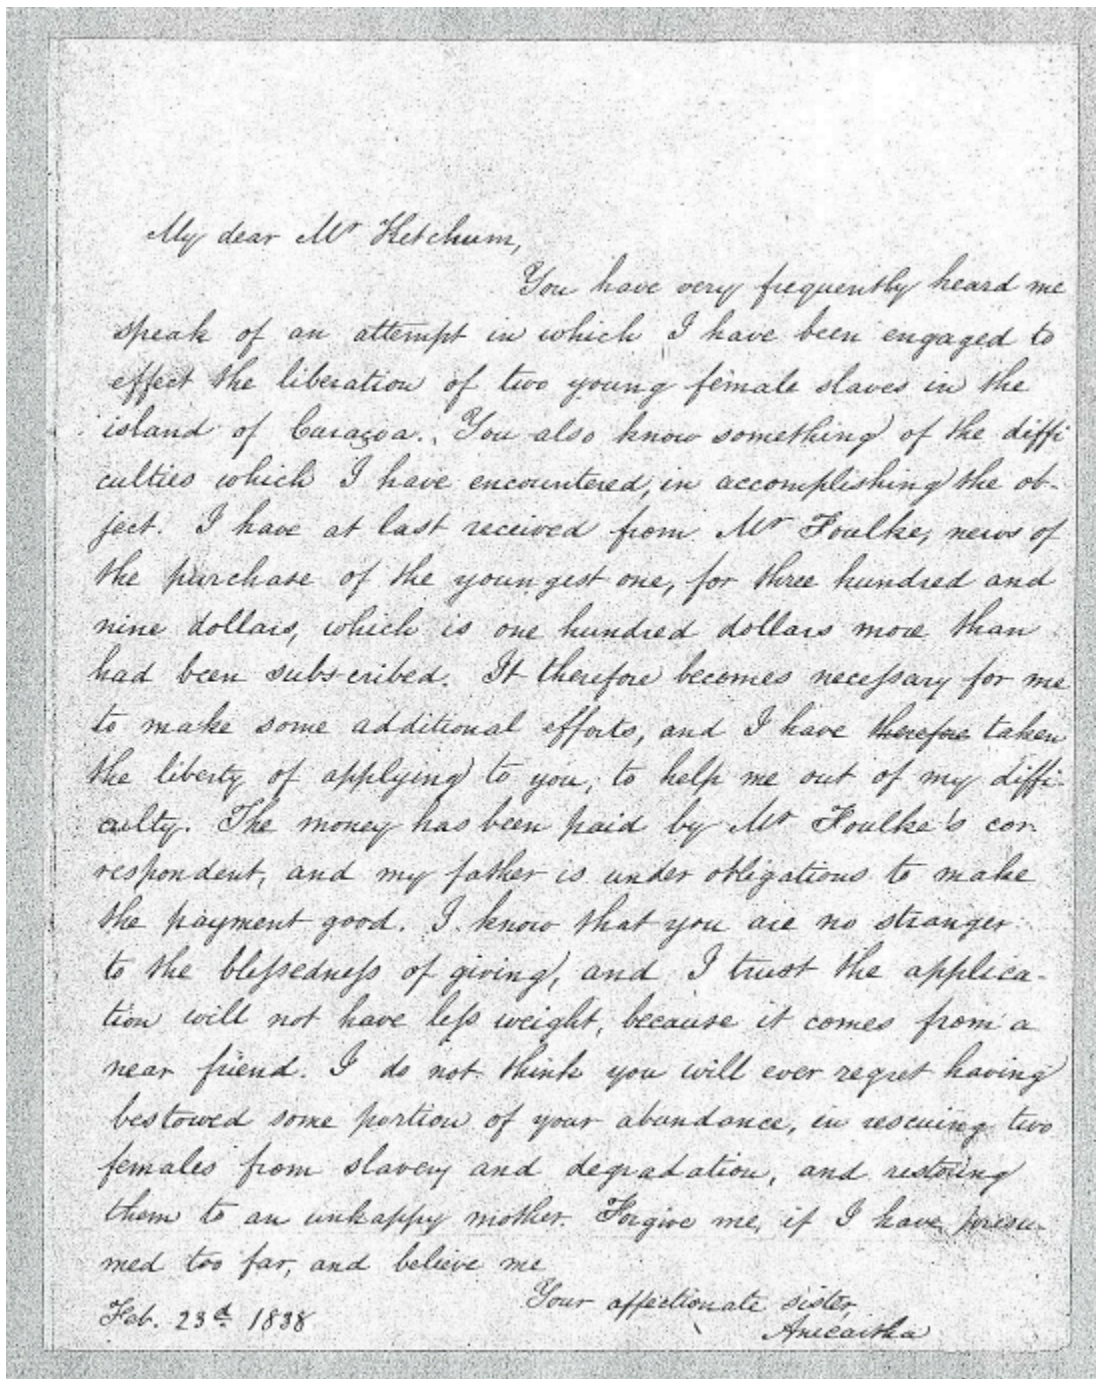 My dear Mr Ketchum,
You have very frequently heard me
speak of an attempt in which I have been engaged to
effect the liberation of two young female slaves in the
island of Curaçoa. You also know something of the diffi
culties which I have encountered, in accomplishing the ob-
ject. I have at last received from Mr Foulke, news of
the purchase of the youngest one, for three hundred and
nine dollars, which is one hundred dollars more than
had been subscribed. It therefore becomes necessary for me
to make some additional efforts, and I have therefore taken
the liberty of applying to you, to help me out of my diffi-
culty. The money has been paid by Mr Foulke's cor-
respondent, and my father is under obligations to make
the payment good. I know that you are no stranger
to the blessedness of giving, and I trust the applica-
tion will not have less weight, because it comes from a
near friend. I do not think you will ever regret having
bestowed some portion of your abundance, in rescuing two
females from slavery and degradation, and restoring
them to an unhappy mother. Forgive me, if I have presu-
med too far, and believe me
Your affectionate sister,
Feb. 23d 1838